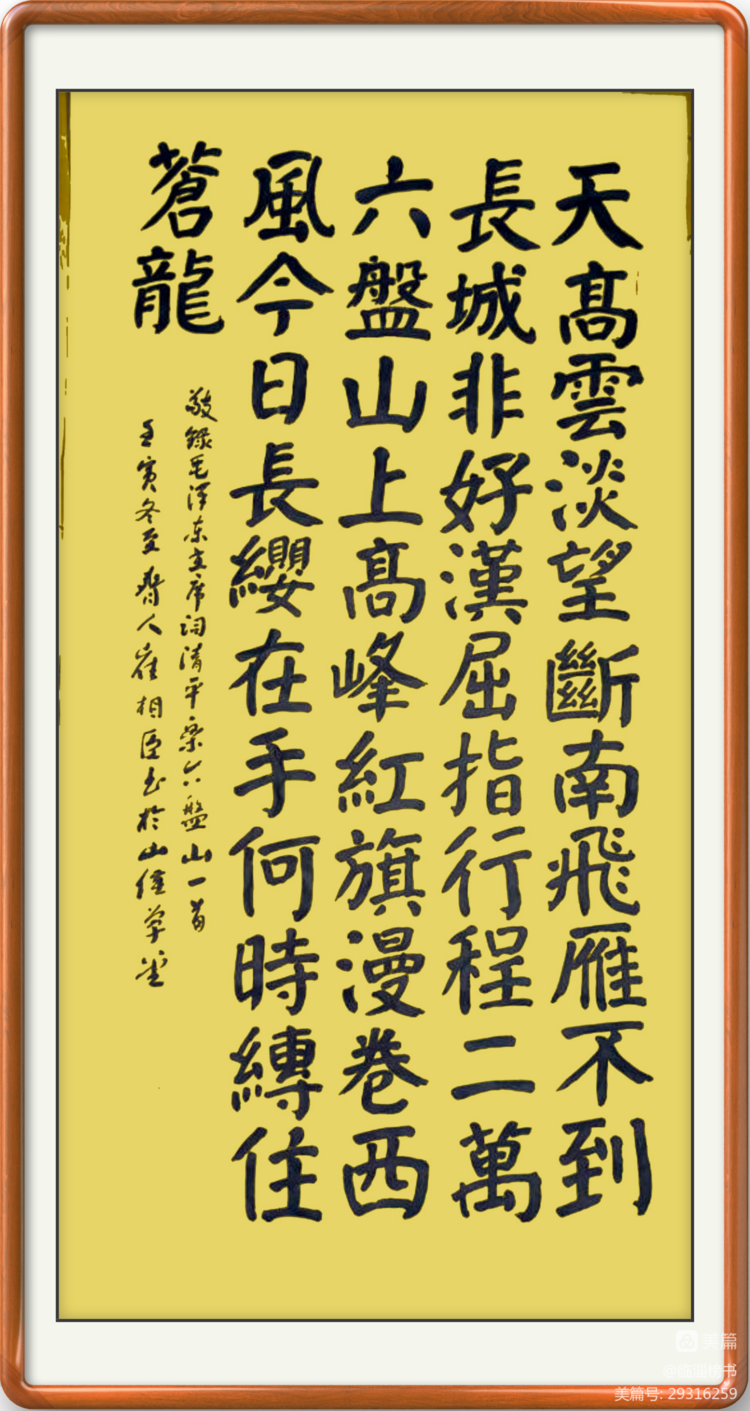 天髙雲淡望斷南飛雁不到
長城非好漢屈指行程二萬
六盤山上髙峰紅旗漫卷西
風今日長纓在手何時縛住
蒼龍
敬録毛泽东主席词清平樂六盤山一首
壬寅冬至齊人崔相臣书於山草堂
美篇
美篇号: 29316259